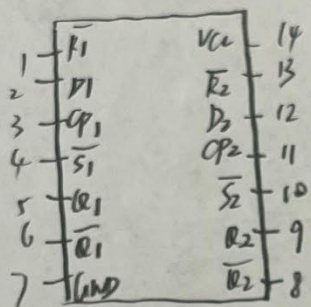 1 R̅1 VCC 14
2 D1 R̅2 13
3 CP1 D2 12
4 S̅1 CP2 11
5 Q1 S̅2 10
6 Q̅1 Q2 9
7 GND Q̅2 8